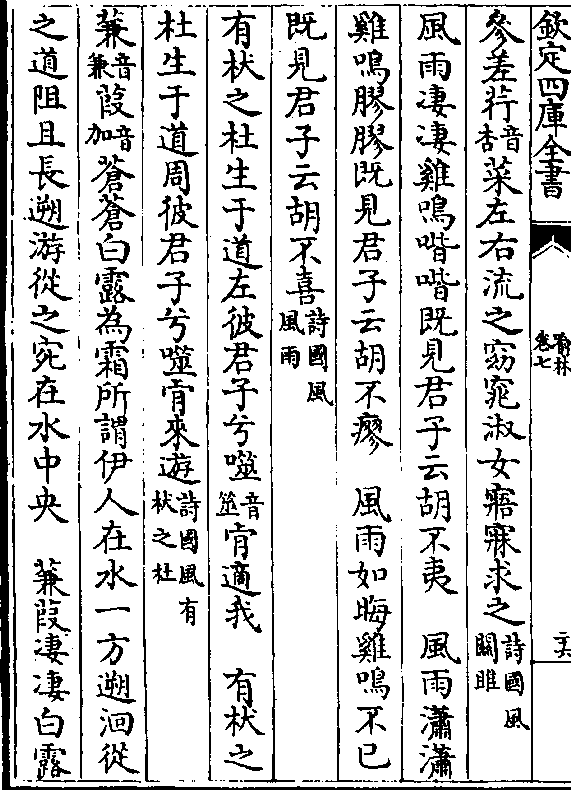 欽定四庫全書
喻林
卷七
參差荇音杏菜左右流之窈窕淑女寤寐求之詩國風關雎
風雨凄凄雞鳴喈喈既見君子云胡不夷　風雨瀟瀟
雞鳴膠膠既見君子云胡不瘳　風雨如晦雞鳴不已
既見君子云胡不喜詩國風風雨
有杕之杜生于道左彼君子兮噬音筮肎適我　有杕之
杜生于道周彼君子兮噬肎來遊詩國風有杕之杜
蒹音兼葭音加蒼蒼白露為霜所謂伊人在水一方遡洄從
之道阻且長遡游從之宛在水中央　蒹葭凄凄白露